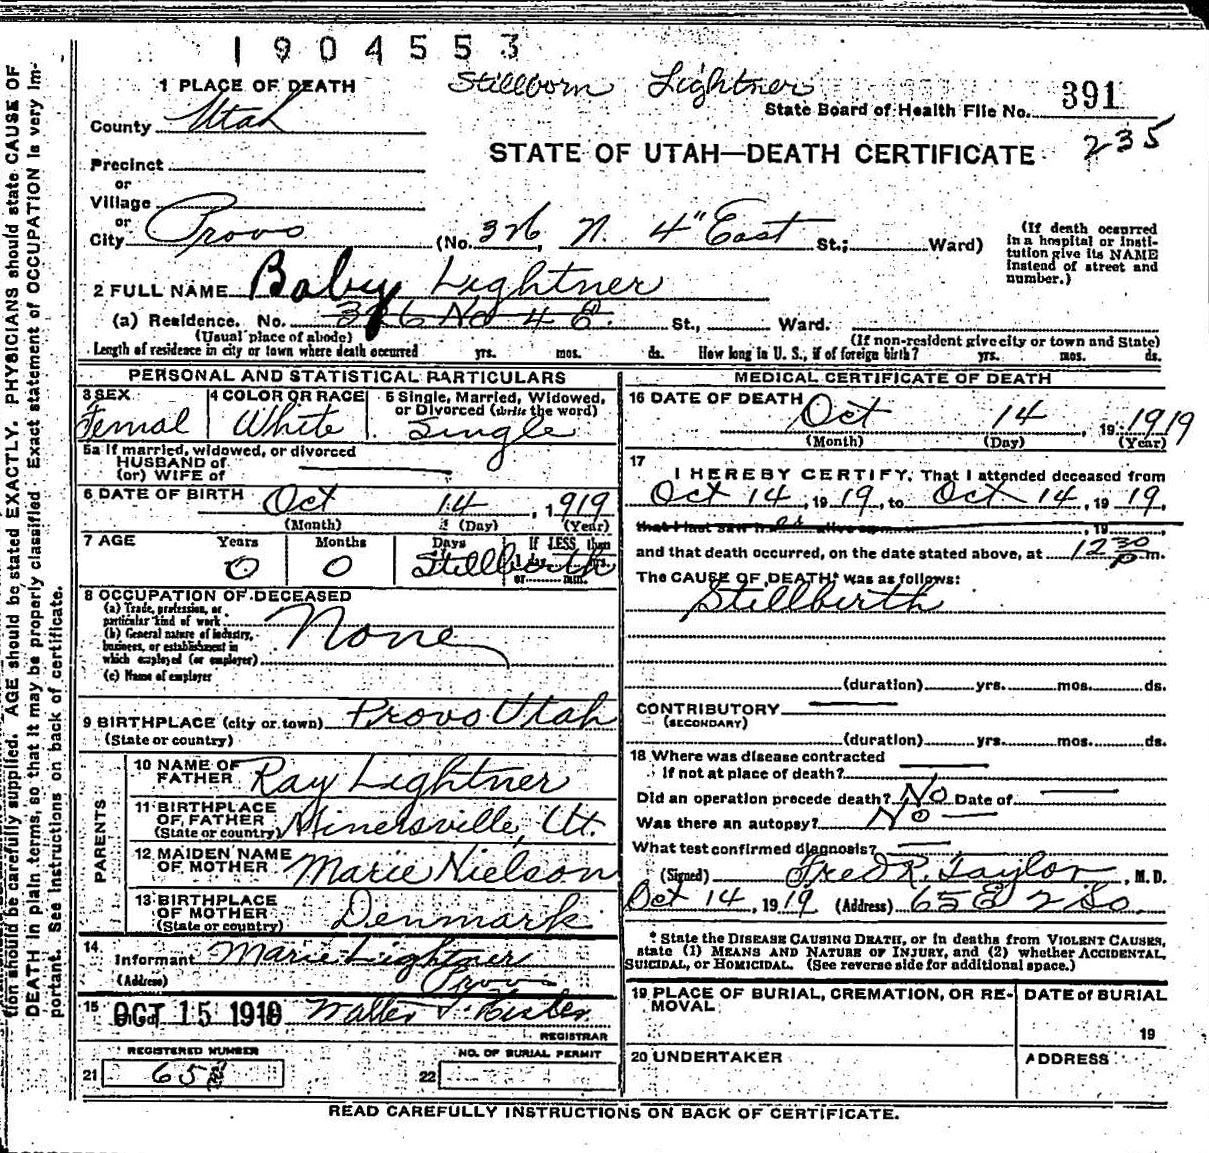 1904553
Stillborn Lightner
1 PLACE OF DEATH
State Board of Health File No. 391
County Utah
235
STATE OF UTAH—DEATH CERTIFICATE
Precinct
or
Village
or
City Provo (No. 326, N. 4" East St.; Ward)
(If death occurred in a hospital or institution give its NAME instead of street and number.)
2 FULL NAME Baby Lightner
(a) Residence. No. 326 No 4 E. St., Ward.
(Usual place of abode) (If non-resident give city or town and State)
Length of residence in city or town where death occurred yrs. mos. ds. How long in U. S., if of foreign birth? yrs. mos. ds.
PERSONAL AND STATISTICAL PARTICULARS
3 SEX 4 COLOR OR RACE 5 Single, Married, Widowed, or Divorced (write the word)
Femal White Single
5a If married, widowed, or divorced
HUSBAND of
(or) WIFE of
6 DATE OF BIRTH Oct 14, 1919
(Month) (Day) (Year)
7 AGE Years Months Days If LESS than
0 0 Stillbirth
8 OCCUPATION OF DECEASED
(a) Trade, profession, or
particular kind of work
None
(b) General nature of industry,
business, or establishment in
which employed (or employer)
(c) Name of employer
9 BIRTHPLACE (city or town) Provo Utah
(State or country)
PARENTS
10 NAME OF FATHER Ray Lightner
11 BIRTHPLACE OF FATHER (State or country) Minersville, Ut.
12 MAIDEN NAME OF MOTHER Marie Nielson
13 BIRTHPLACE OF MOTHER (State or country) Denmark
14 Informant Marie Lightner
(Address) Provo
15 OCT 15 1919 Walter T. Hisler
REGISTRAR
REGISTERED NUMBER NO. OF BURIAL PERMIT
21 22
MEDICAL CERTIFICATE OF DEATH
16 DATE OF DEATH Oct 14, 1919
(Month) (Day) (Year)
17 I HEREBY CERTIFY, That I attended deceased from
Oct 14, 1919, to Oct 14, 1919,
that I last saw her alive on , 19
and that death occurred, on the date stated above, at 12 30 P m.
The CAUSE OF DEATH* was as follows:
Stillbirth
(duration) yrs. mos. ds.
CONTRIBUTORY
(SECONDARY)
(duration) yrs. mos. ds.
18 Where was disease contracted
if not at place of death?
Did an operation precede death? No Date of
Was there an autopsy? No
What test confirmed diagnosis?
(Signed) Fred R. Taylor, M.D.
Oct 14, 1919 (Address) 65 E 2 So.
* State the DISEASE CAUSING DEATH, or in deaths from VIOLENT CAUSES,
state (1) MEANS AND NATURE OF INJURY, and (2) whether ACCIDENTAL,
SUICIDAL, or HOMICIDAL. (See reverse side for additional space.)
19 PLACE OF BURIAL, CREMATION, OR REMOVAL DATE of BURIAL
19
20 UNDERTAKER ADDRESS
READ CAREFULLY INSTRUCTIONS ON BACK OF CERTIFICATE.
tion should be carefully supplied. AGE should be stated EXACTLY. PHYSICIANS should state CAUSE OF
DEATH in plain terms, so that it may be properly classified. Exact statement of OCCUPATION is very im-
portant. See instructions on back of certificate.